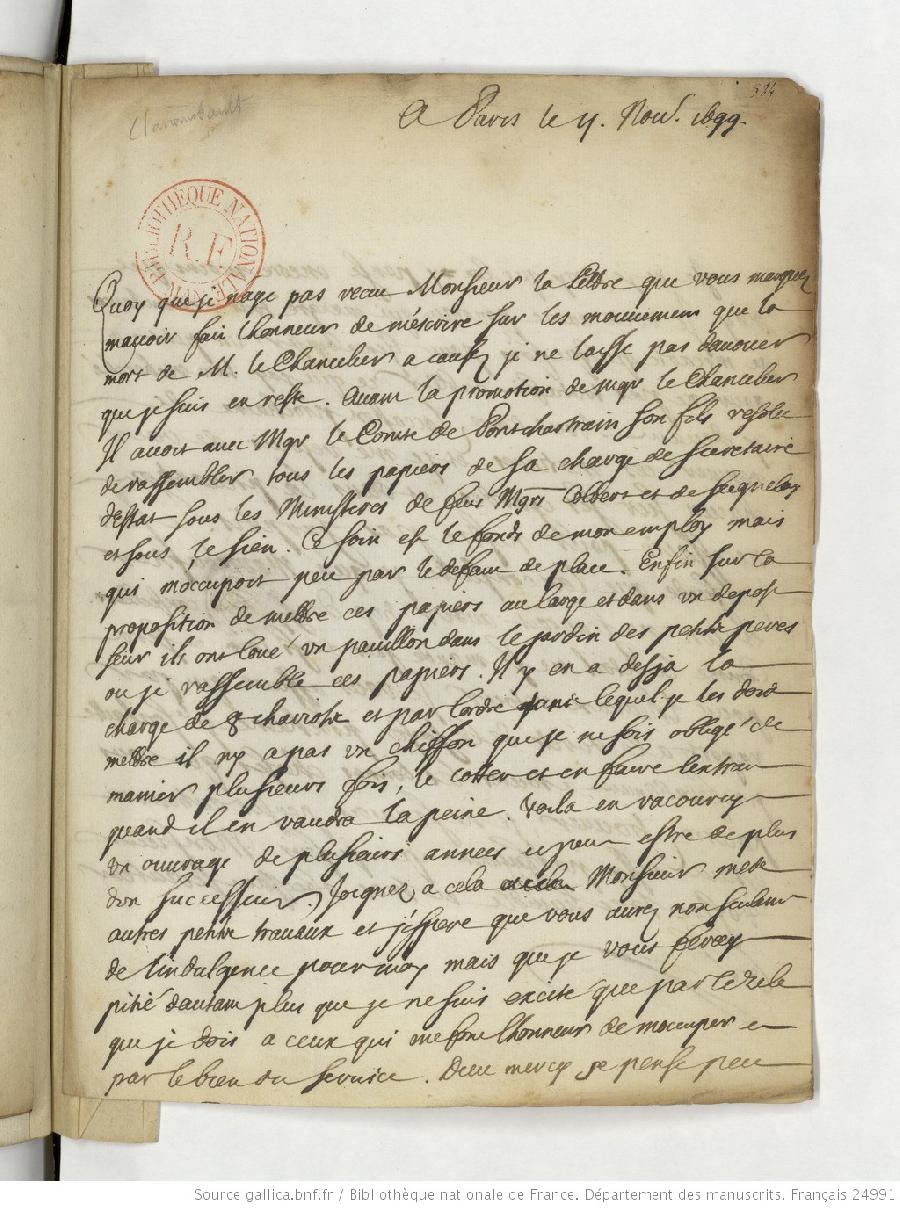 Clairambault
A Paris le 4. Nov.r 1699.
BIBLIOTHÈQUE NATIONALE
R.F.
Quoy que je n'aye pas receu Monsieur la lettre que vous marquez
m'avoir fait l'honneur de m'escrire sur les mouuemens que la
mort de M. le Chancelier a causez je ne laisse pas d'avouer
que je suis en reste. Avant la promotion de Mgr le Chancelier
Il avoit avec Mgr le Comte de Pontchartrain son fils resolu
de rassembler tous les papiers de sa charge de secretaire
d'Estat sous les Ministeres de feus Mgrs Colbert et de Seignelay
et sous le sien. Ce soin est le fonds de mon employ mais
qui m'occupoit peu par le defaut de place. Enfin sur la
proposition de mettre ces papiers au large et dans un depost
seur ils ont loué un pavillon dans le jardin des petits peres
ou je rassemble ces papiers. Il y en a desja la
charge de 8 chariots et par l'ordre dans lequel je les dois
mettre il n'y a pas un chiffon que je ne sois obligé de
manier plusieurs fois, le cotter et en faire l'extrait
quand il en vaudra la peine. Voila en racourcy
un ouvrage de plusieurs années et peut estre de plus
d'un successeur. Joignez a cela Monsieur mes
autres petits travaux et j'espere que vous aurez non seulement
de l'indulgence pour moy mais que je vous feray
pitié d'autant plus que je ne suis excité que par le zele
que je dois a ceux qui me font l'honneur de m'occuper et
par le bien du service. Dieu mercy je pense peu
Source gallica.bnf.fr / Bibliothèque nationale de France. Département des manuscrits. Français 24991